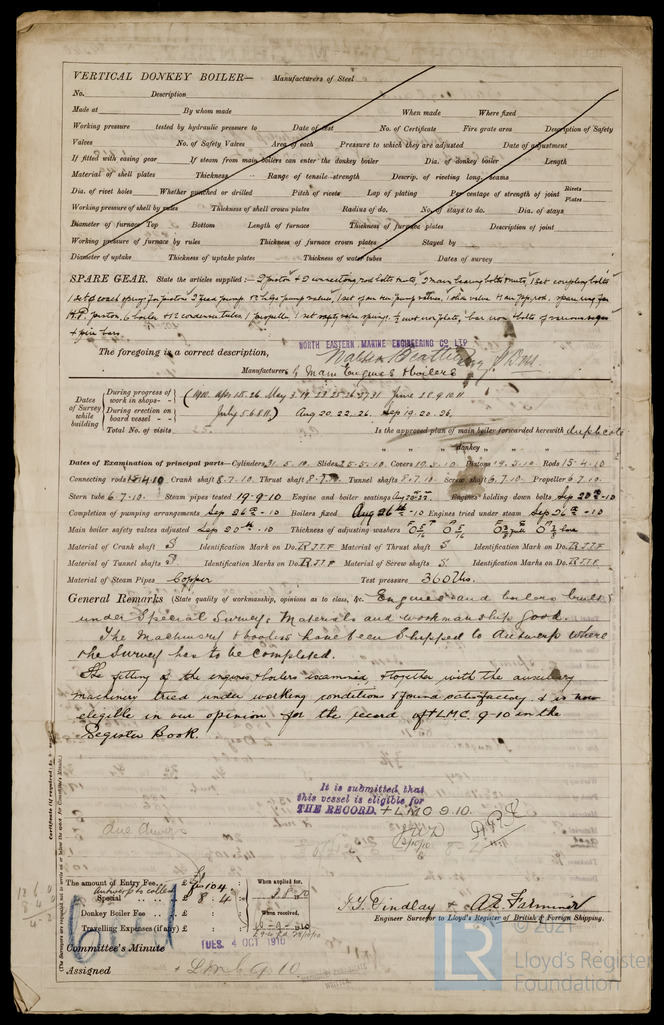 VERTICAL DONKEY BOILER— Manufacturers of Steel
No. Description
Made at By whom made When made Where fixed
Working pressure tested by hydraulic pressure to Date of test No. of Certificate Fire grate area Description of Safety
Valves No. of Safety Valves Area of each Pressure to which they are adjusted Date of adjustment
If fitted with easing gear If steam from main boilers can enter the donkey boiler Dia. of donkey boiler Length
Material of shell plates Thickness Range of tensile strength Descrip. of riveting long. seams
Dia. of rivet holes Whether punched or drilled Pitch of rivets Lap of plating Per centage of strength of joint Rivets Plates
Working pressure of shell by rules Thickness of shell crown plates Radius of do. No. of stays to do. Dia. of stays
Diameter of furnace Top Bottom Length of furnace Thickness of furnace plates Description of joint
Working pressure of furnace by rules Thickness of furnace crown plates Stayed by
Diameter of uptake Thickness of uptake plates Thickness of water tubes Dates of survey
SPARE GEAR. State the articles supplied:— 2 piston & 2 connecting rod bolts & nuts, 2 main bearing bolts & nuts, 1 set coupling bolts
H.P. piston, 6 boiler & 12 condenser tubes, 1 propeller, 1 set safety valve springs, bar iron & bolts of various sizes
& fire bars.
The foregoing is a correct description,
NORTH EASTERN MARINE ENGINEERING CO LTD
Manufacturer of Main Engines & boilers
Dates of Survey while building
During progress of work in shops - - 1910. Apr. 15. 26. May 3. 31 June
During erection on board vessel - - - July 5 6 8 11 Aug 20. 22. 26. Sep 19. 20. 26.
Total No. of visits 25 Is the approved plan of main boiler forwarded herewith duplicate
" " " donkey " " "
Dates of Examination of principal parts—Cylinders 31.5.10. Slides 25.5.10 Covers 19.5.10 Pistons 19.5.10 Rods 15.4.10
Connecting rods 15.4.10 Crank shaft 8.7.10. Thrust shaft 8.7.10. Tunnel shafts 8.7.10 Screw shaft 6.7.10 Propeller 6.7.10.
Stern tube 6.7.10. Steam pipes tested 19.9.10 Engine and boiler seatings Aug 20.22. Engines holding down bolts Sep 20th .10
Completion of pumping arrangements Sep 26th .10 Boilers fixed Aug 26th .10 Engines tried under steam Sep 26th .10
Main boiler safety valves adjusted Sep 20th .10 Thickness of adjusting washers
Material of Crank shaft S Identification Mark on Do. R.J.T.F Material of Thrust shaft S Identification Mark on Do. R.J.T.F
Material of Tunnel shafts S Identification Marks on Do. R.J.T.F Material of Screw shafts S. Identification Marks on Do. R.J.T.F.
Material of Steam Pipes Copper Test pressure 360 lbs.
General Remarks (State quality of workmanship, opinions as to class, &c. Engines and boilers built
under Special Survey. Materials and workmanship good.
The machinery & boilers have been shipped to Antwerp where
the survey has to be completed.
The fitting of the engines & boilers examined, & together with the auxiliary
machinery tried under working conditions & found satisfactory, & is now
eligible in our opinion for the record of + LMC 9-10 in the
Register Book.
It is submitted that
this vessel is eligible for
THE RECORD. + LMC 9.10.
Certificate (if required) to be sent to
(The Surveyors are requested not to write on or below the space for Committee's Minute.)
The amount of Entry Fee £
Antwerp to collect
Special £ 8 . 4
Donkey Boiler Fee £
Travelling Expenses (if any) £
When applied for,
When received,
J.T. Findlay & A.E. Farminer
Engineer Surveyor to Lloyd's Register of British & Foreign Shipping.
Committee's Minute TUES. 4 OCT 1910
Assigned + LMC 9.10
WRITTEN.
© 2021
LR
Lloyd's Register
Foundation